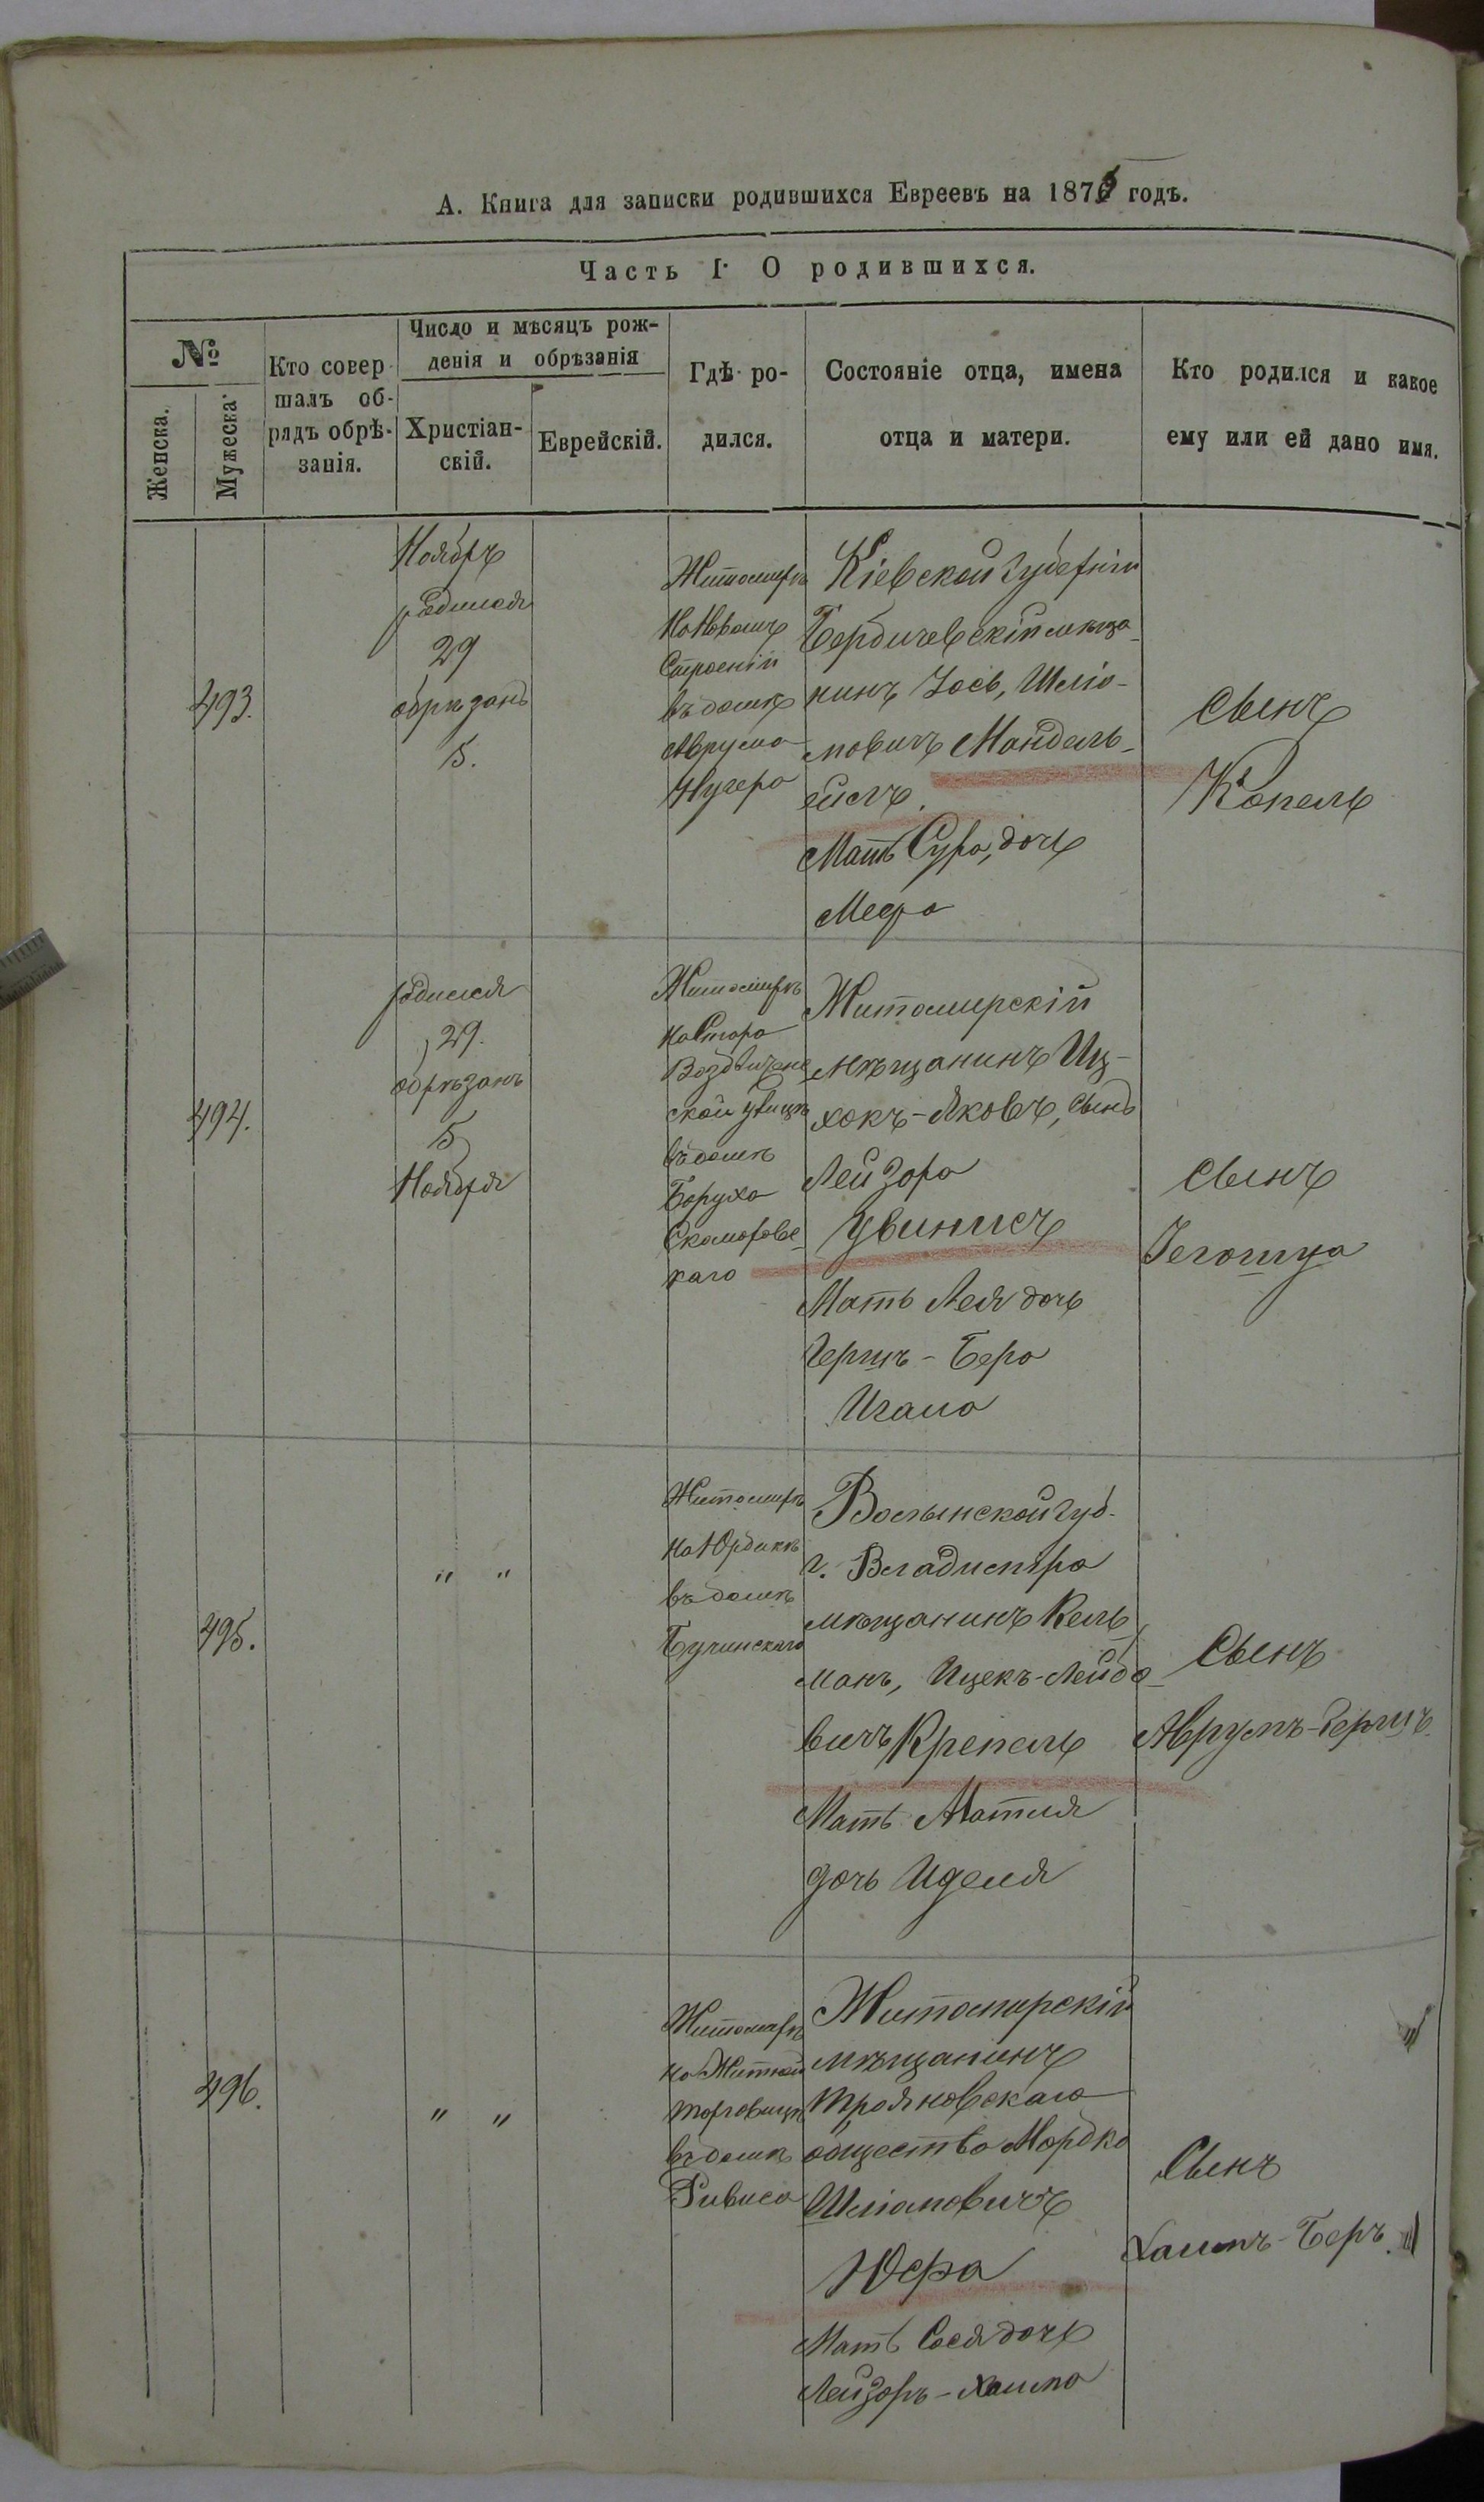 А. Книга для записки родившихся Евреевъ на 1875 годъ.
Часть I. О родившихся.
№
Женска.
Мужеска
Кто совер-
шалъ об-
рядъ обрѣ-
занія.
Число и мѣсяцъ рож-
денія и обрѣзанія
Христіан-
скій.
Еврейскій.
Гдѣ ро-
дился.
Состояніе отца, имена
отца и матери.
Кто родился и какое
ему или ей дано имя.
493.
Ноябрь
родился
29
обрѣзанъ
5.
Житомирѣ
На Новомъ
Строеніи
въ домѣ
Аврума
Кіевской губерніи
Бердичевскій мѣща-
нинъ Іось, Шліо-
мовичъ Мандель-
ейсъ.
Мать Сура, дочь
Меера
Сынъ
Копель
494.
родился
29.
обрѣзанъ
5
Ноября
Житомирѣ
на Старо
Воздвижен
ской улицѣ
въ домѣ
Боруха
Скаморовс-
каго
Житомирскій
мѣщанинъ Иц-
хокъ-Яковъ, сынъ
Лейзора
Увинисъ
Мать Лея дочь
Гершъ-Бера
Сынъ
Іегошуа
495.
" "
Житомирѣ
на Юрдикѣ
въ домѣ
Бучинскаго
Волынской губ.
г. Владиміра
мѣщанинъ Кель
манъ, Ицекъ-Лейбо-
вичъ Крепель
Мать Матля
дочь Иделя
Сынъ
Аврумъ-Гершъ.
496.
" "
Житомирѣ
на Житной
торговицѣ
въ домѣ
Ривиса
Житомирскій
мѣщанинъ
Трояновскаго
общества Мордко
Шліомовичъ
Юфра
Мать Сося дочь
Лейзоръ-Хаима
Сынъ
Хаимъ-Беръ.